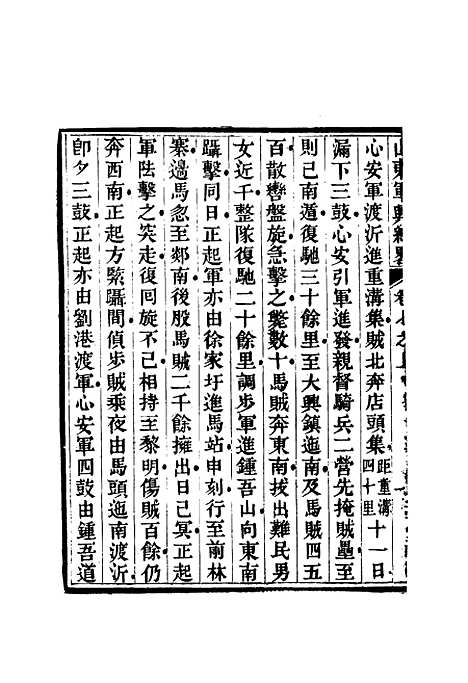 山東軍興紀畧 卷七之
心安軍渡沂進重溝集賊北奔店頭集距重溝四十里十一日
漏下三鼓心安引軍進發親督騎兵二營先掩賊壘至
則已南遁復馳三十餘里至大興鎮迤南及馬賊四五
百散轡盤旋急擊之斃數十馬賊奔東南拔出難民男
女近千整隊復馳二十餘里調步軍進鍾吾山向東南
躡擊同日正起軍亦由徐家圩進馬站申刻行至前林
寨邊馬忽至郯南後股馬賊二千餘擁出日已冥正起
軍陸擊之突走復回旋不已相持至黎明傷賊百餘仍
奔西南正起方緊躡間偵步賊乘夜由馬頭迤南渡沂
卽夕三鼓正起亦由劉港渡軍心安軍四鼓由鍾吾道